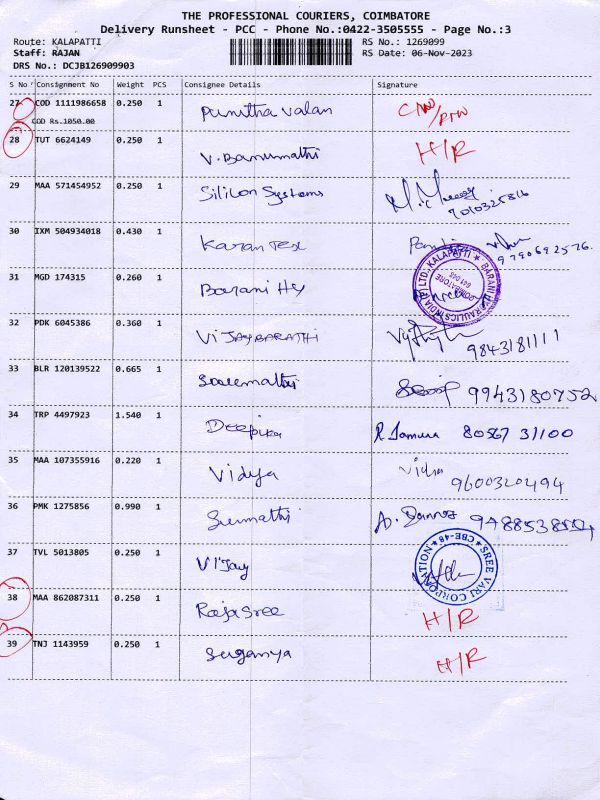 THE PROFESSIONAL COURIERS, COIMBATORE
Delivery Runsheet - PCC - Phone No.:0422-3505555 - Page No.:3
Route: KALAPATTI RS No.: 1269099
Staff: RAJAN RS Date: 06-Nov-2023
DRS No.: DCJB126909903
S No Consignment No Weight PCS Consignee Details Signature
27 COD 1111986658 0.250 1 Punitha Valan
COD Rs.1050.00
28 TUT 6624149 0.250 1 V. Banumathi H/R
29 MAA 571454952 0.250 1 Silicon Systems
30 IXM 504934018 0.430 1 Karan Tex 9790692576.
31 MGD 174315 0.260 1 Barani Hy
32 PDK 6045386 0.360 1 VIJAYBARATHI 9843181111
33 BLR 120139522 0.665 1 9943180752
34 TRP 4497923 1.540 1 Deepika 80567 31100
35 MAA 107355916 0.220 1 Vidya Vidya
9600320494
36 PMK 1275856 0.990 1 Sumathi
37 TVL 5013805 0.250 1 Vijay
SREE VARI CORPORATION ★ CBE-48 ★
38 MAA 862087311 0.250 1 Rajasree H/R
39 TNJ 1143959 0.250 1 Suganya H/R